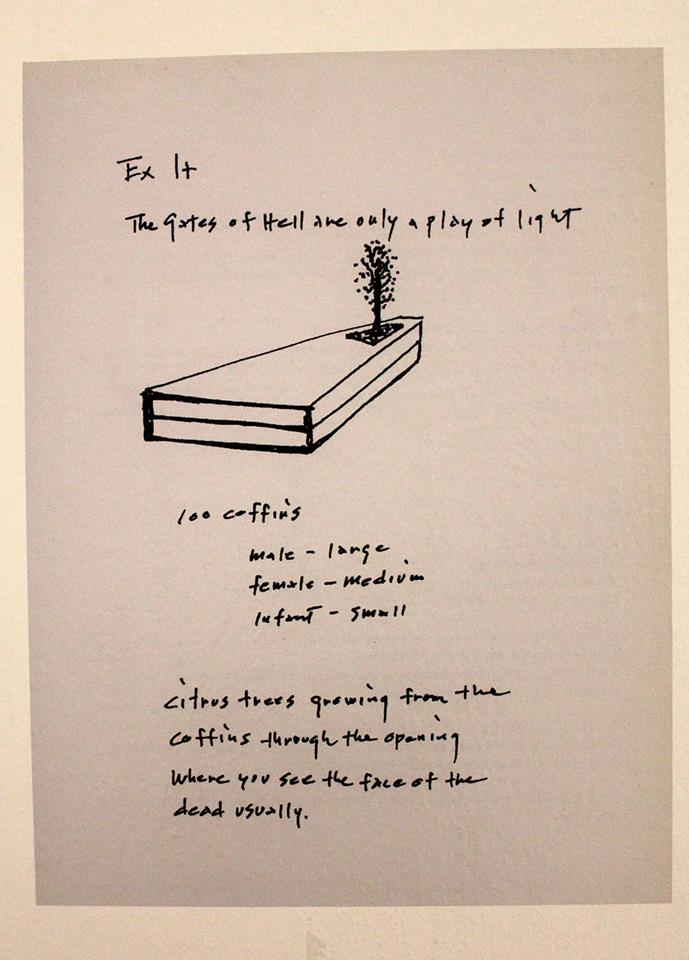 Ex It
The Gates of Hell are only a play of light
100 coffins
male - large
female - medium
infant - small
citrus trees growing from the
coffins through the opening
where you see the face of the
dead usually.